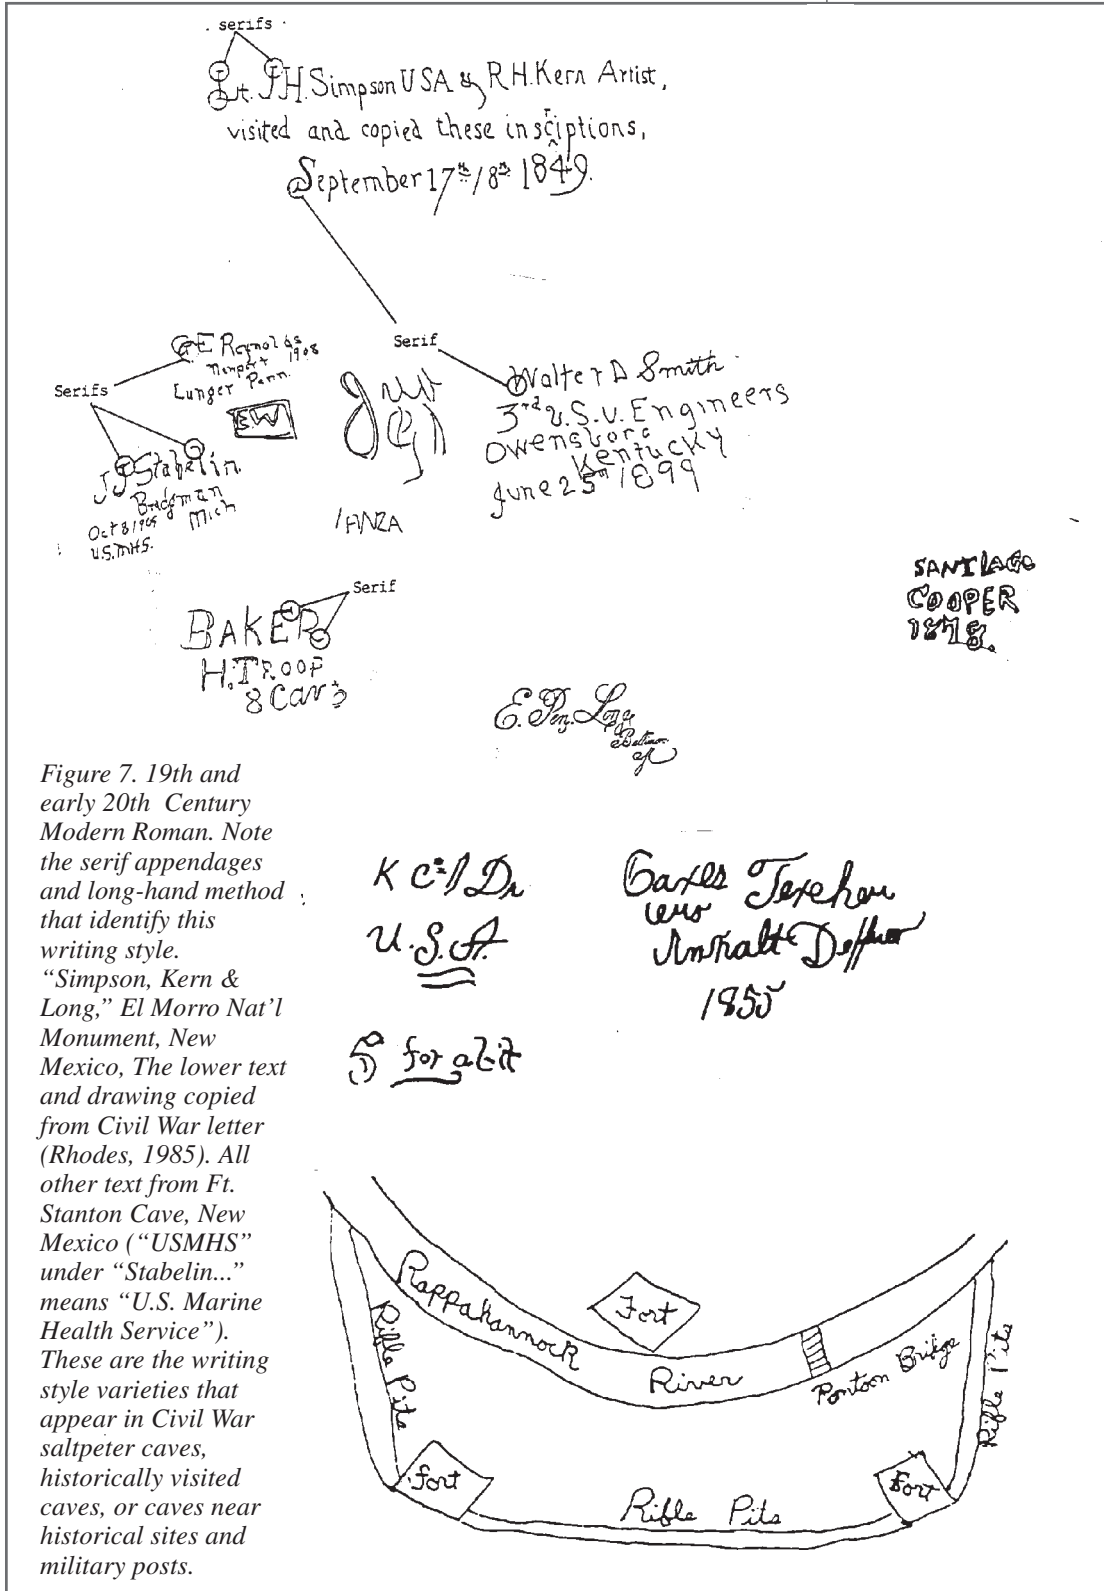 serifs
Lt. J.H. Simpson USA & R.H. Kern Artist,
visited and copied these insciptions,
r
^
September 17th/18th 1849.
Serif
Serifs
G E Reynolds
Newport 1908
Lunger Penn.
E.W
J J Stabelin.
Bridgman
Mich
Oct 8 1909
U.S.MHS.
Walter D Smith
3rd U.S.V. Engineers
Owensboro
Kentucky
June 25th 1899
ANZA
Serif
BAKER
H. TROOP
8 Cav
SANTIAGO
COOPER
1878.
E. Pen. Long
Baltimore
Figure 7. 19th and
early 20th Century
Modern Roman. Note
the serif appendages
and long-hand method
that identify this
writing style.
“Simpson, Kern &
Long,” El Morro Nat’l
Monument, New
Mexico, The lower text
and drawing copied
from Civil War letter
(Rhodes, 1985). All
other text from Ft.
Stanton Cave, New
Mexico (“USMHS”
under “Stabelin...”
means “U.S. Marine
Health Service”).
These are the writing
style varieties that
appear in Civil War
saltpeter caves,
historically visited
caves, or caves near
historical sites and
military posts.
U.S.A.
5 for a bit
1855
Rappahannock
River
Fort
Pontoon Bridge
Rifle Pits
Rifle Pits
Fort
Rifle Pits
Fort